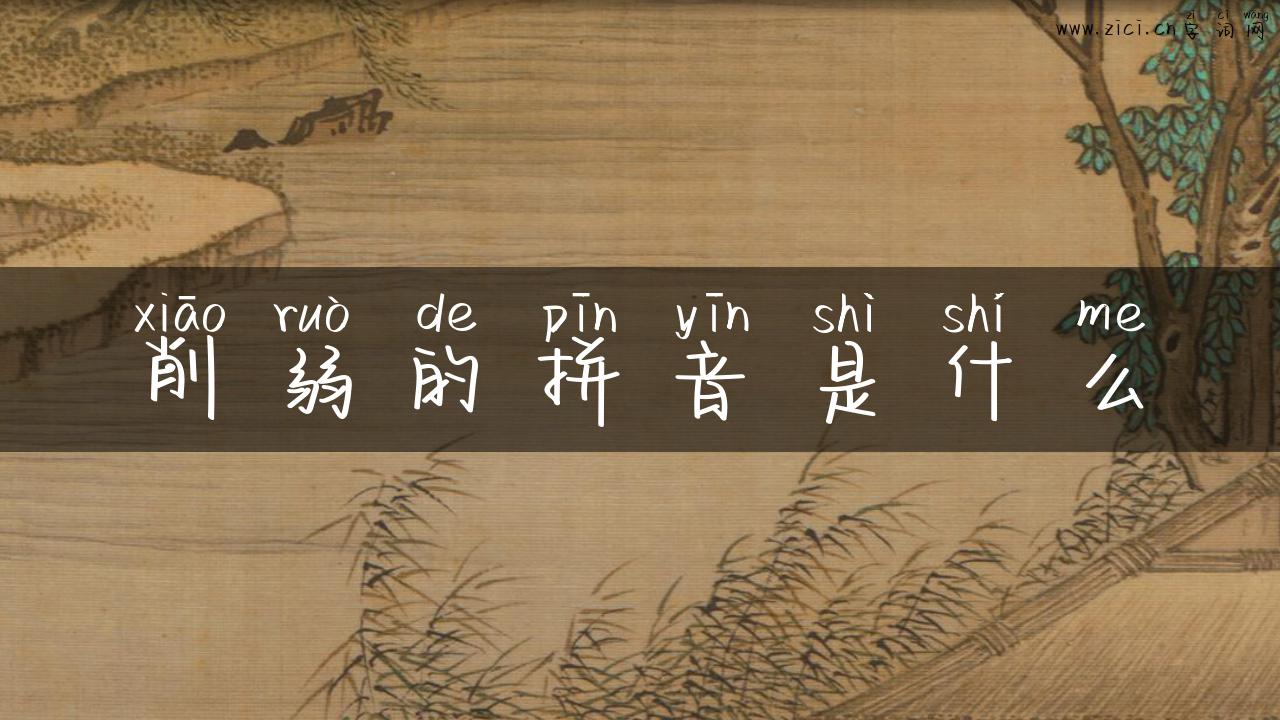 zì cí wǎng
www.zici.cn字词网
xiāo ruò de pīn yīn shì shí me
削弱的拼音是什么